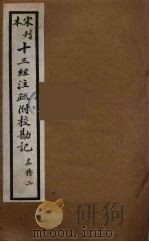 宋刊本十三經注疏附校勘記 左傳二